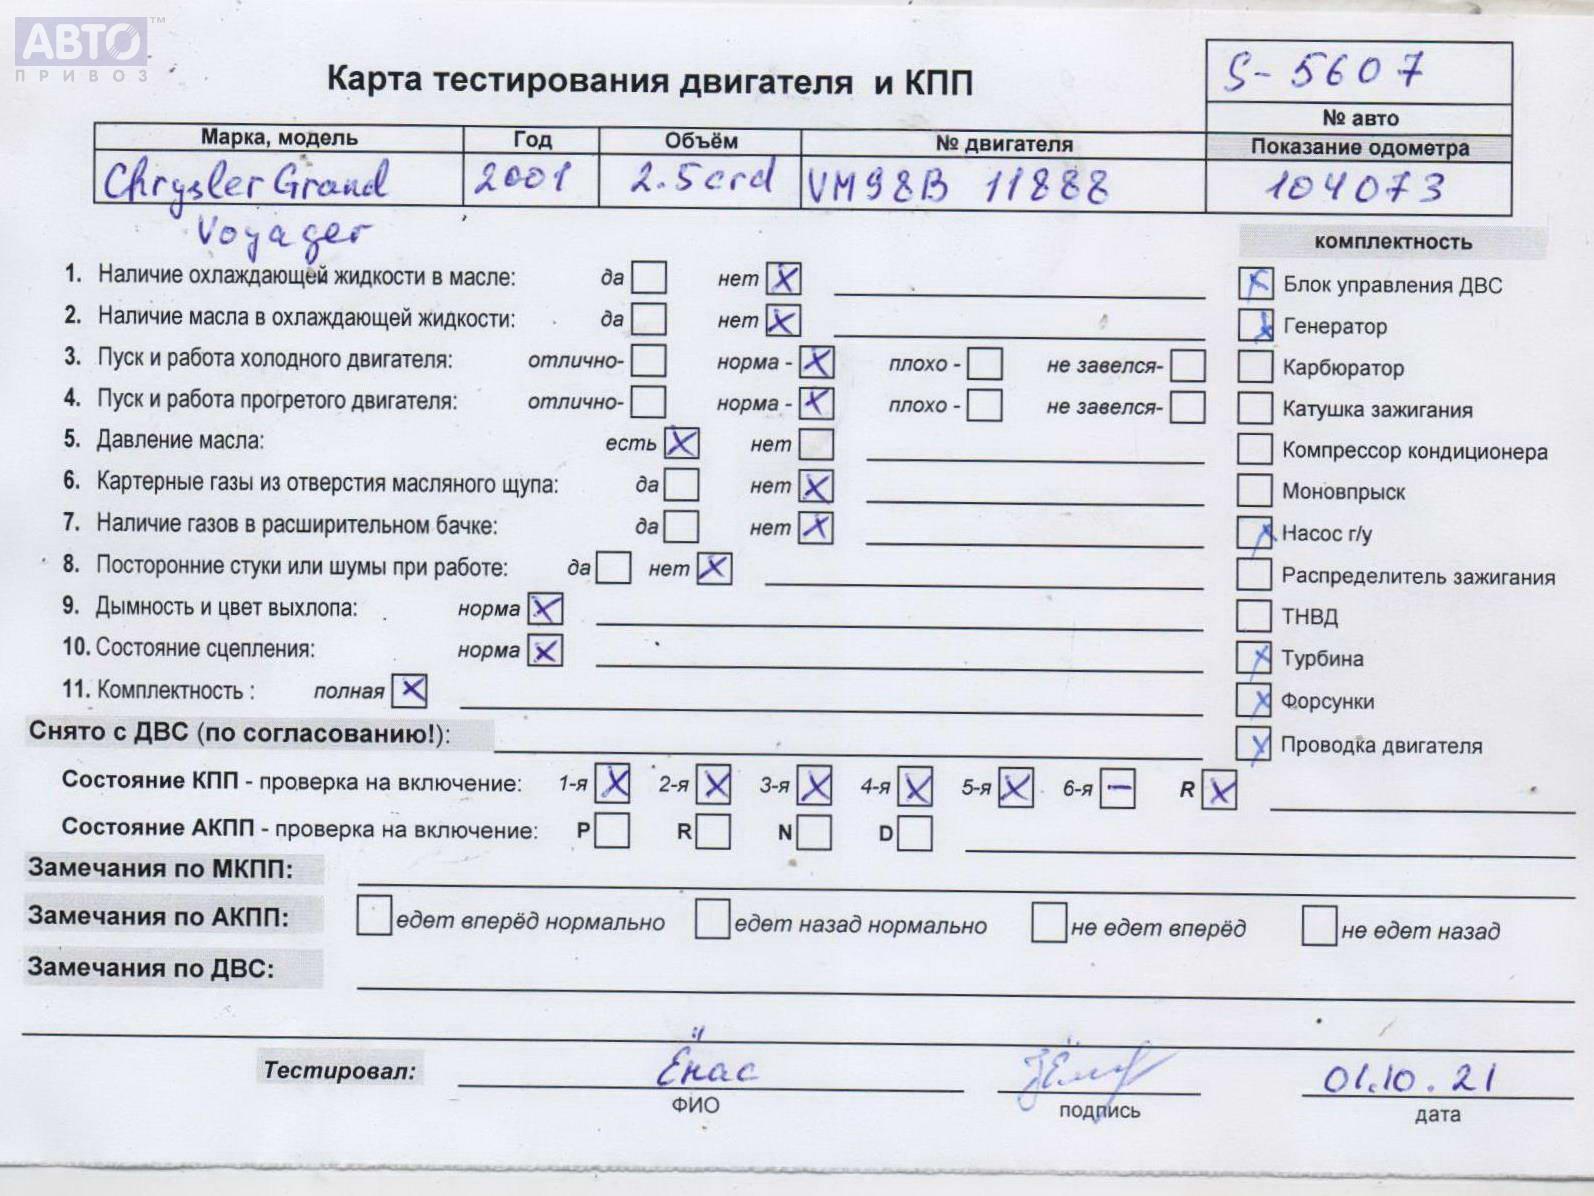 АВТО ™
ПРИВОЗ
Карта тестирования двигателя и КПП
S-5607
№ авто
Марка, модель Год Объём № двигателя Показание одометра
Chrysler Grand 2001 2.5crd VM98B 11888 104073
Voyager
комплектность
1. Наличие охлаждающей жидкости в масле: да нет X
2. Наличие масла в охлаждающей жидкости: да нет X
3. Пуск и работа холодного двигателя: отлично- норма - X плохо - не завелся-
4. Пуск и работа прогретого двигателя: отлично- норма - X плохо - не завелся-
5. Давление масла: есть X нет
6. Картерные газы из отверстия масляного щупа: да нет X
7. Наличие газов в расширительном бачке: да нет X
8. Посторонние стуки или шумы при работе: да нет X
9. Дымность и цвет выхлопа: норма X
10. Состояние сцепления: норма X
11. Комплектность : полная X
X Блок управления ДВС
X Генератор
Карбюратор
Катушка зажигания
Компрессор кондиционера
Моновпрыск
X Насос г/у
Распределитель зажигания
ТНВД
X Турбина
X Форсунки
X Проводка двигателя
Снято с ДВС (по согласованию!):
Состояние КПП - проверка на включение: 1-я X 2-я X 3-я X 4-я X 5-я X 6-я — R X
Состояние АКПП - проверка на включение: P R N D
Замечания по МКПП:
Замечания по АКПП: едет вперёд нормально едет назад нормально не едет вперёд не едет назад
Замечания по ДВС:
Тестировал: Ёнас 01.10.21
ФИО подпись дата